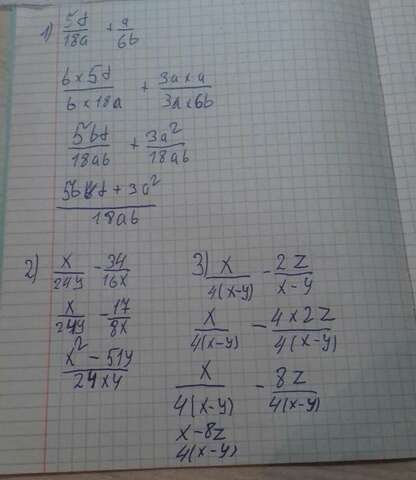 1) 5d/18a + a/6b
6×5d/6×18a + 3a×a/3a×6b
5bd/18ab + 3a²/18ab
5bd + 3a²/18ab
2) x/24y - 34/16x
x/24y - 17/8x
x² - 51y/24xy
3) x/4(x-y) - 2z/x-y
x/4(x-y) - 4×2z/4(x-y)
x/4(x-y) - 8z/4(x-y)
x-8z/4(x-y)